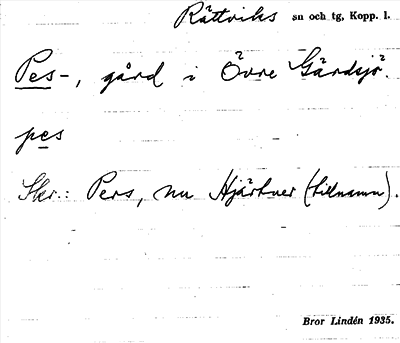 Rättviks sn och tg, Kopp. l.
Pes-, gård i Övre Gärdsjö.
pes
Skr.: Pers, nu Hjärtner (tillnamn).
Bror Lindén 1935.